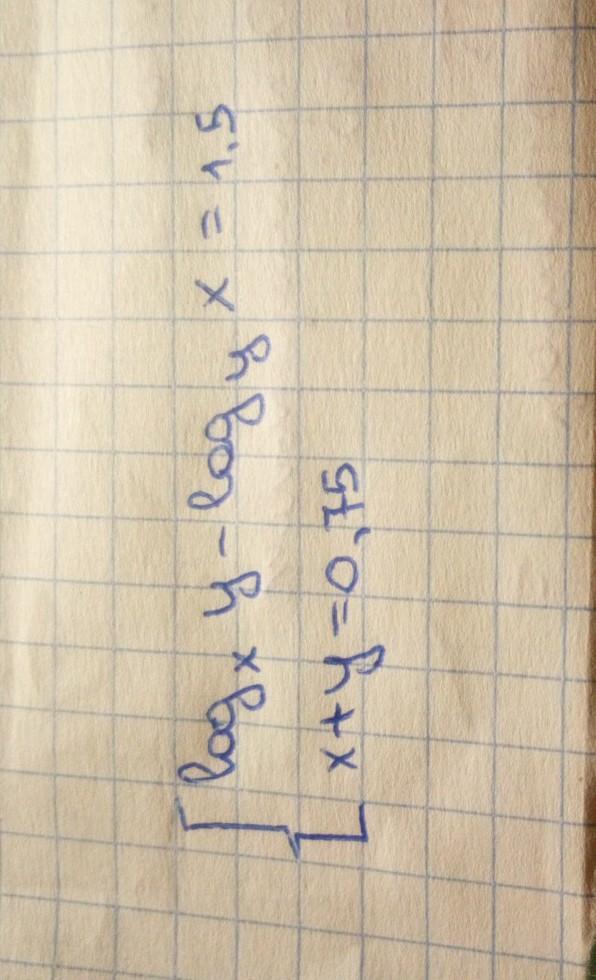 log_x y - log_y x = 1,5
x + y = 0,75